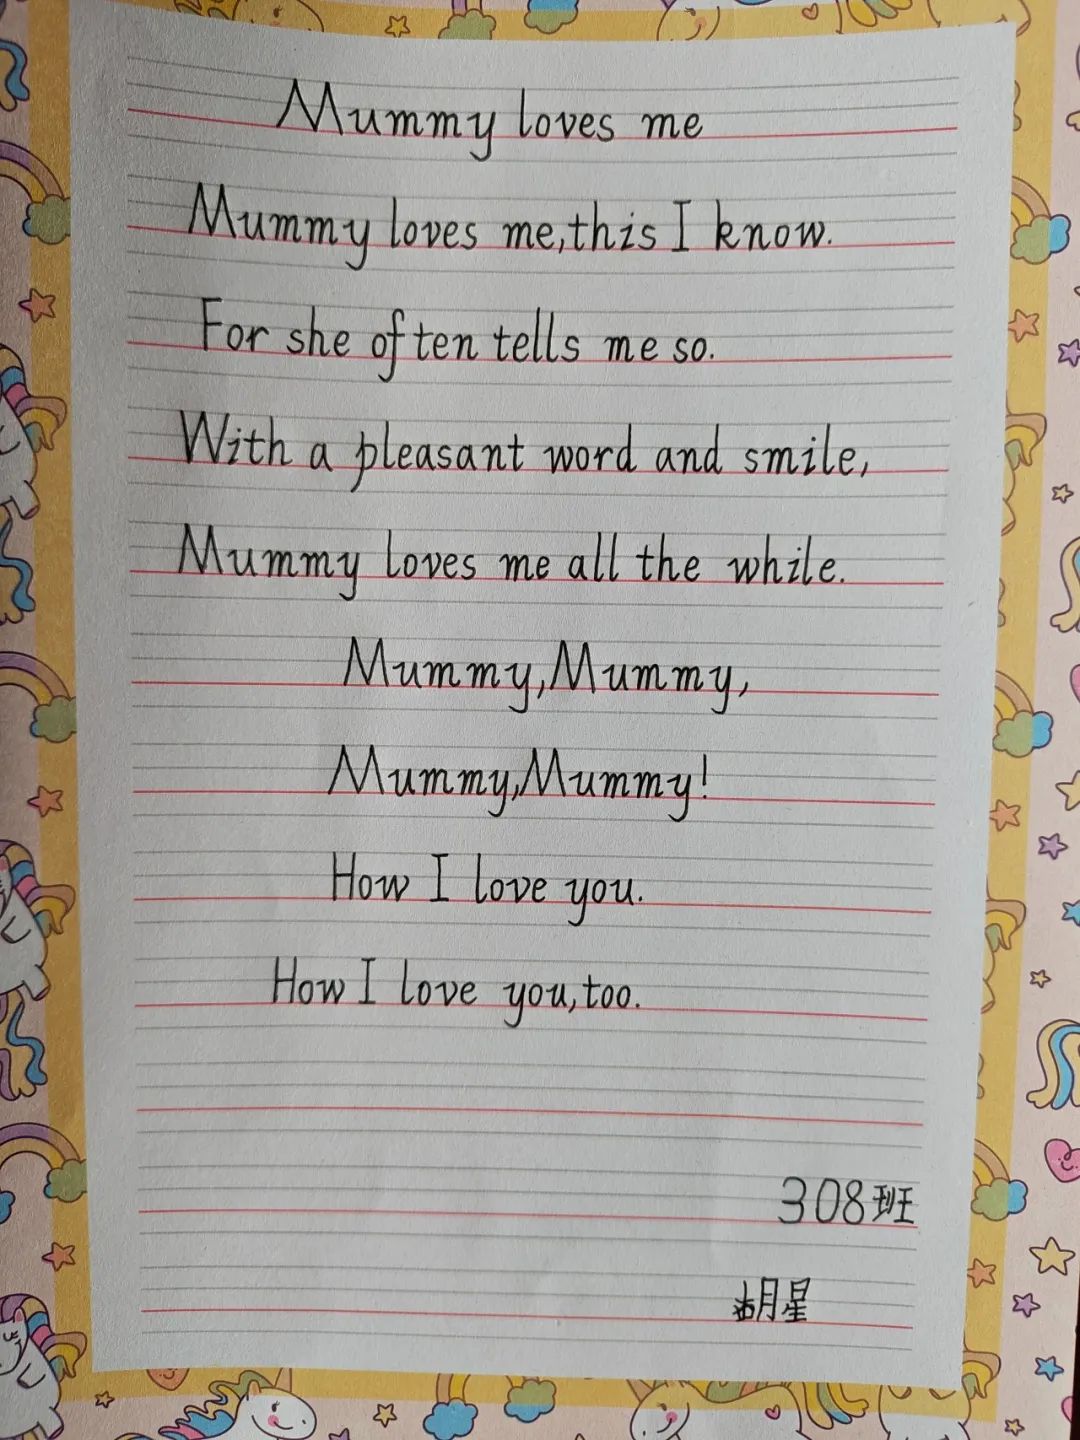 Mummy loves me
Mummy loves me,this I know.
For she often tells me so.
With a pleasant word and smile,
Mummy loves me all the while.
Mummy,Mummy,
Mummy,Mummy!
How I love you.
How I love you,too.
308班
胡星